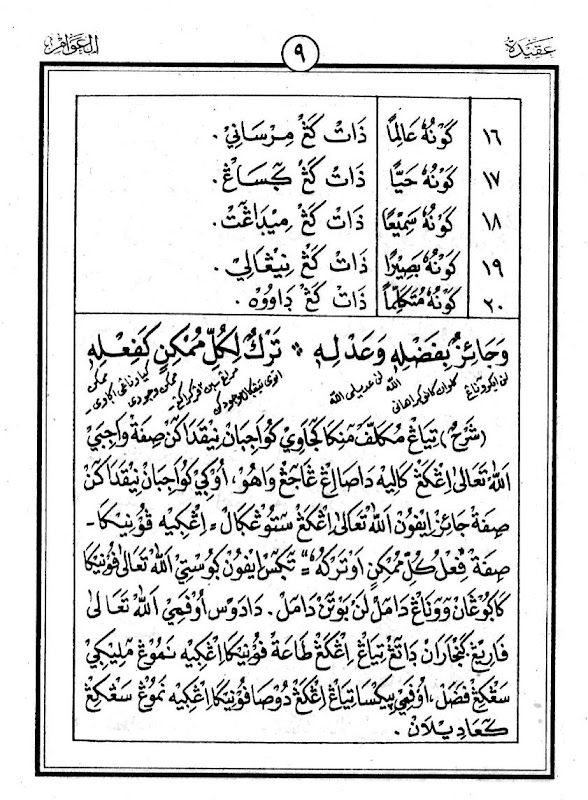 عقيدة ٩ العوام
١٦ كَوْنُهُ عَالِمًا ذَاتْ كَڠْ مِرْسَانِيْ.
١٧ كَوْنُهُ حَيًّا ذَاتْ كَڠْ ڮَسَاڠْ.
١٨ كَوْنُهُ سَمِيْعًا ذَاتْ كَڠْ مِيْدَاڠَتْ.
١٩ كَوْنُهُ بَصِيْرًا ذَاتْ كَڠْ نِيْڠَالِيْ.
٢٠ كَوْنُهُ مُتَكَلِّمًا ذَاتْ كَڠْ دَاوُوْهْ.
وَجَائِزٌ بِفَضْلِهِ وَعَدْلِهِ * تَرْكٌ لِكُلِّ مُمْكِنٍ كَفِعْلِهِ
(شَرْحٌ) تِيَاڠْ مُكَلَّفْ مَنِكَا كَجَاوِيْ كَوَاجِبَانْ نِيْقَدَاكَنْ صِفَةْ وَاجِبَيْ
اَللهْ تَعَالَى اِڠْكَڠْ كَالِيْهْ دَاصَا اِڠْ ڠَاجَڠْ وَاهُوْ، اُوْكِيْ كَوَاجِبَانْ نِيْقَدَاكَنْ
صِفَةْ جَائِزْ اِيْفُوْنْ اَللهْ تَعَالَى اِڠْكَڠْ سَتُوْڠْكَالْ = اِڠْكِيْهْ فُوْنِيْكَا-
صِفَةْ فِعْلُ كُلِّ مُمْكِنٍ اَوْ تَرْكُهُ = تَڮَسْ اِيْفُوْنْ ڮُوسْتِيْ اَللهْ تَعَالَى فُوْنِيْكَا
كَاڮُوْڠَانْ وَوَنَاڠْ دَامَلْ لَنْ بَوْتَنْ دَامَلْ. دَادَوْسْ اُوْفَمِيْ اَللهْ تَعَالَى
فَارِيْڠْ ڮَنْجَارَانْ دَاتَڠْ تِيَاڠْ اِڠْكَڠْ طَاعَةْ فُوْنِيْكَا اِڠْكِيْهْ نَمُوْڠْ مَلِيْكِيْ
سَڠْكِڠْ فَضَلْ، اُوْفَمِيْ پِيْكْسَا تِيَاڠْ اِڠْكَڠْ دَوْصَا فُوْنِيْكَا اِڠْكِيْهْ نَمُوْڠْ سَڠْكِڠْ
كَعَادِيْلَانْ.